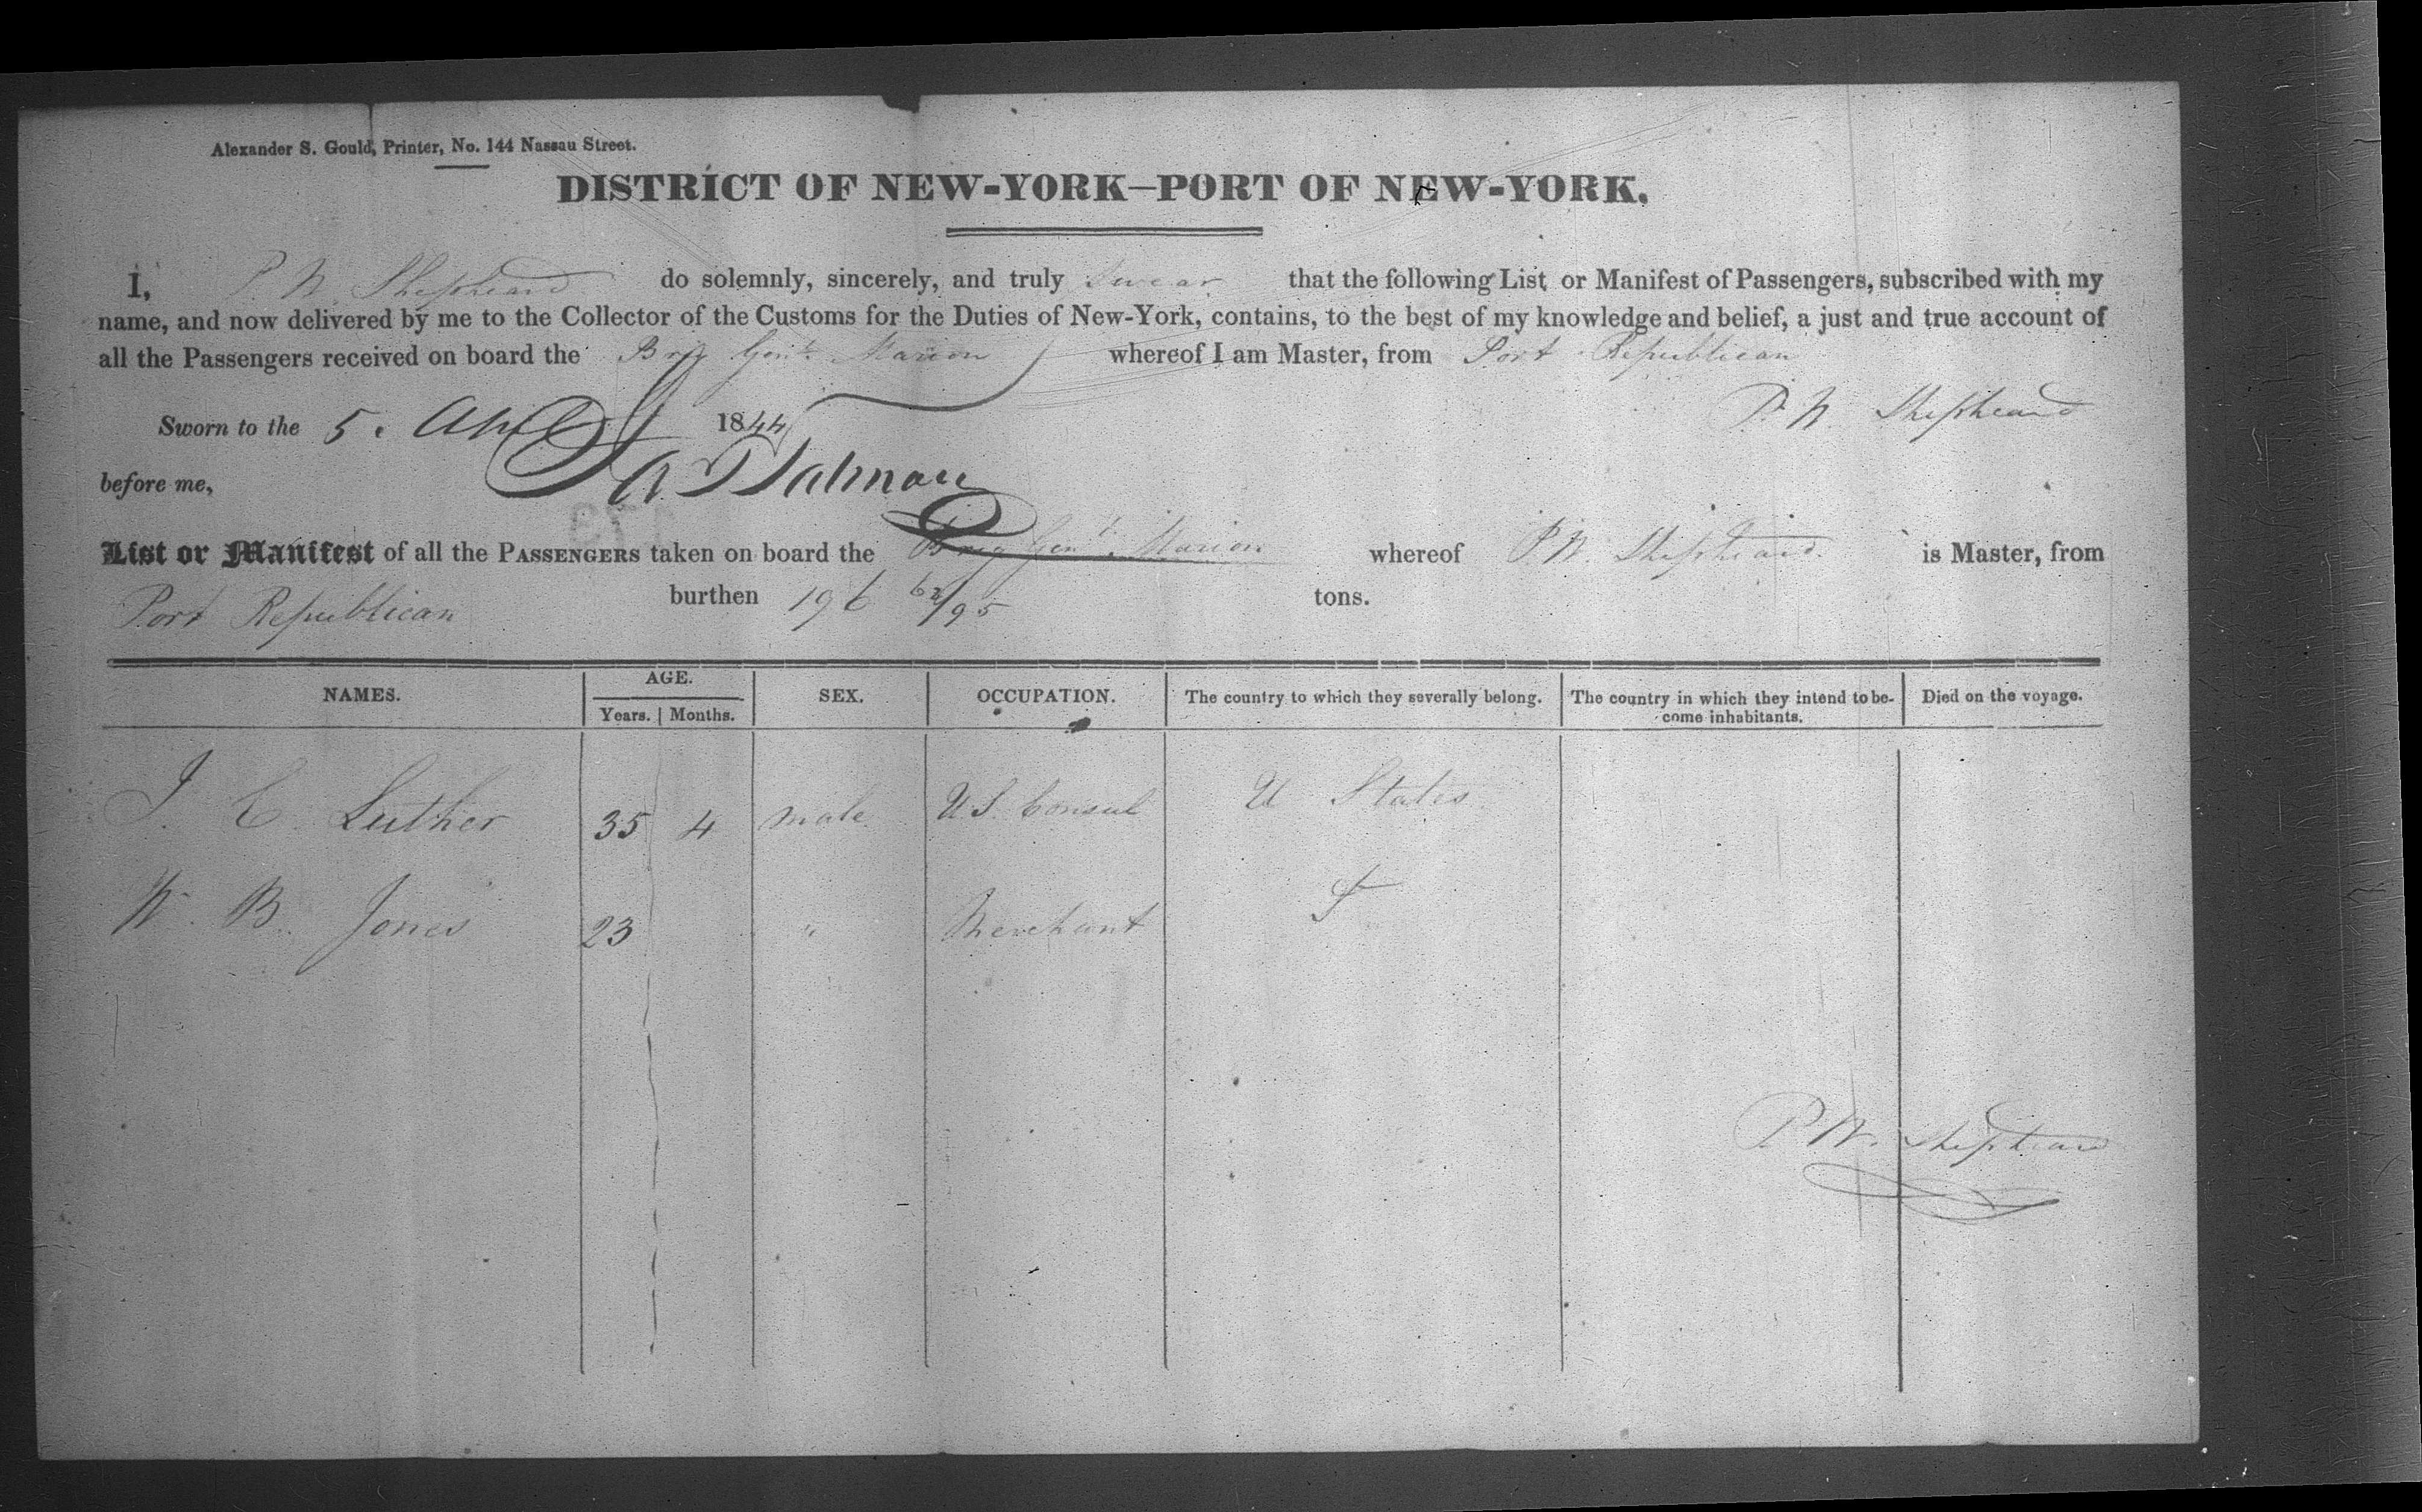 Alexander S. Gould, Printer, No. 144 Nassau Street.
DISTRICT OF NEW-YORK—PORT OF NEW-YORK.
I, P. W. Shepheard do solemnly, sincerely, and truly swear that the following List or Manifest of Passengers, subscribed with my
name, and now delivered by me to the Collector of the Customs for the Duties of New-York, contains, to the best of my knowledge and belief, a just and true account of
all the Passengers received on board the Brig Genl. Marion whereof I am Master, from Port Republican
P. W. Shepheard
Sworn to the 5. 1844
before me,
List or Manifest of all the PASSENGERS taken on board the Brig Genl. Marion whereof P W. Shepheard is Master, from
Port Republican burthen 196 62/95 tons.
NAMES. AGE. SEX. OCCUPATION. The country to which they severally belong. The country in which they intend to be- Died on the voyage.
Years. Months. come inhabitants.
J. C. Luther 35 4 male U S. Consul U States
W. B. Jones 23 " Merchant
P W. Shepheard